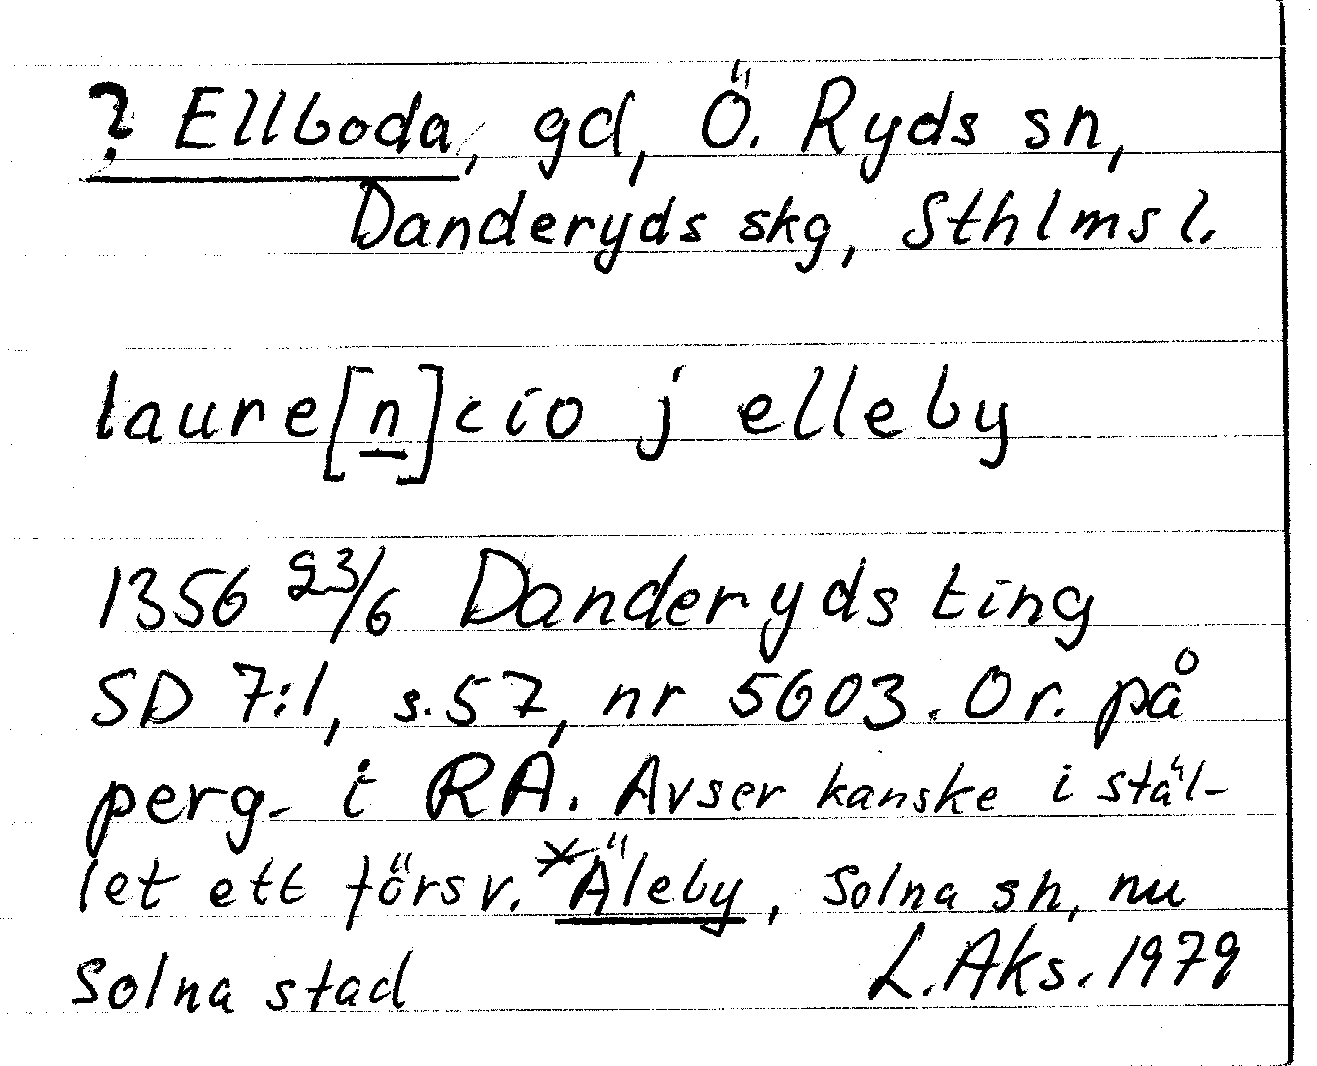 ? Ellboda, gd, Ö. Ryds sn,
Danderyds skg, Sthlms l.
laure[n]cio j elleby
1356 23/6 Danderyds ting
SD 7:1, s. 57, nr 5603. Or. på
perg. i RA. Avser kanske i stäl-
let ett försv. *Äleby, Solna sn, nu
Solna stad L. Aks. 1979